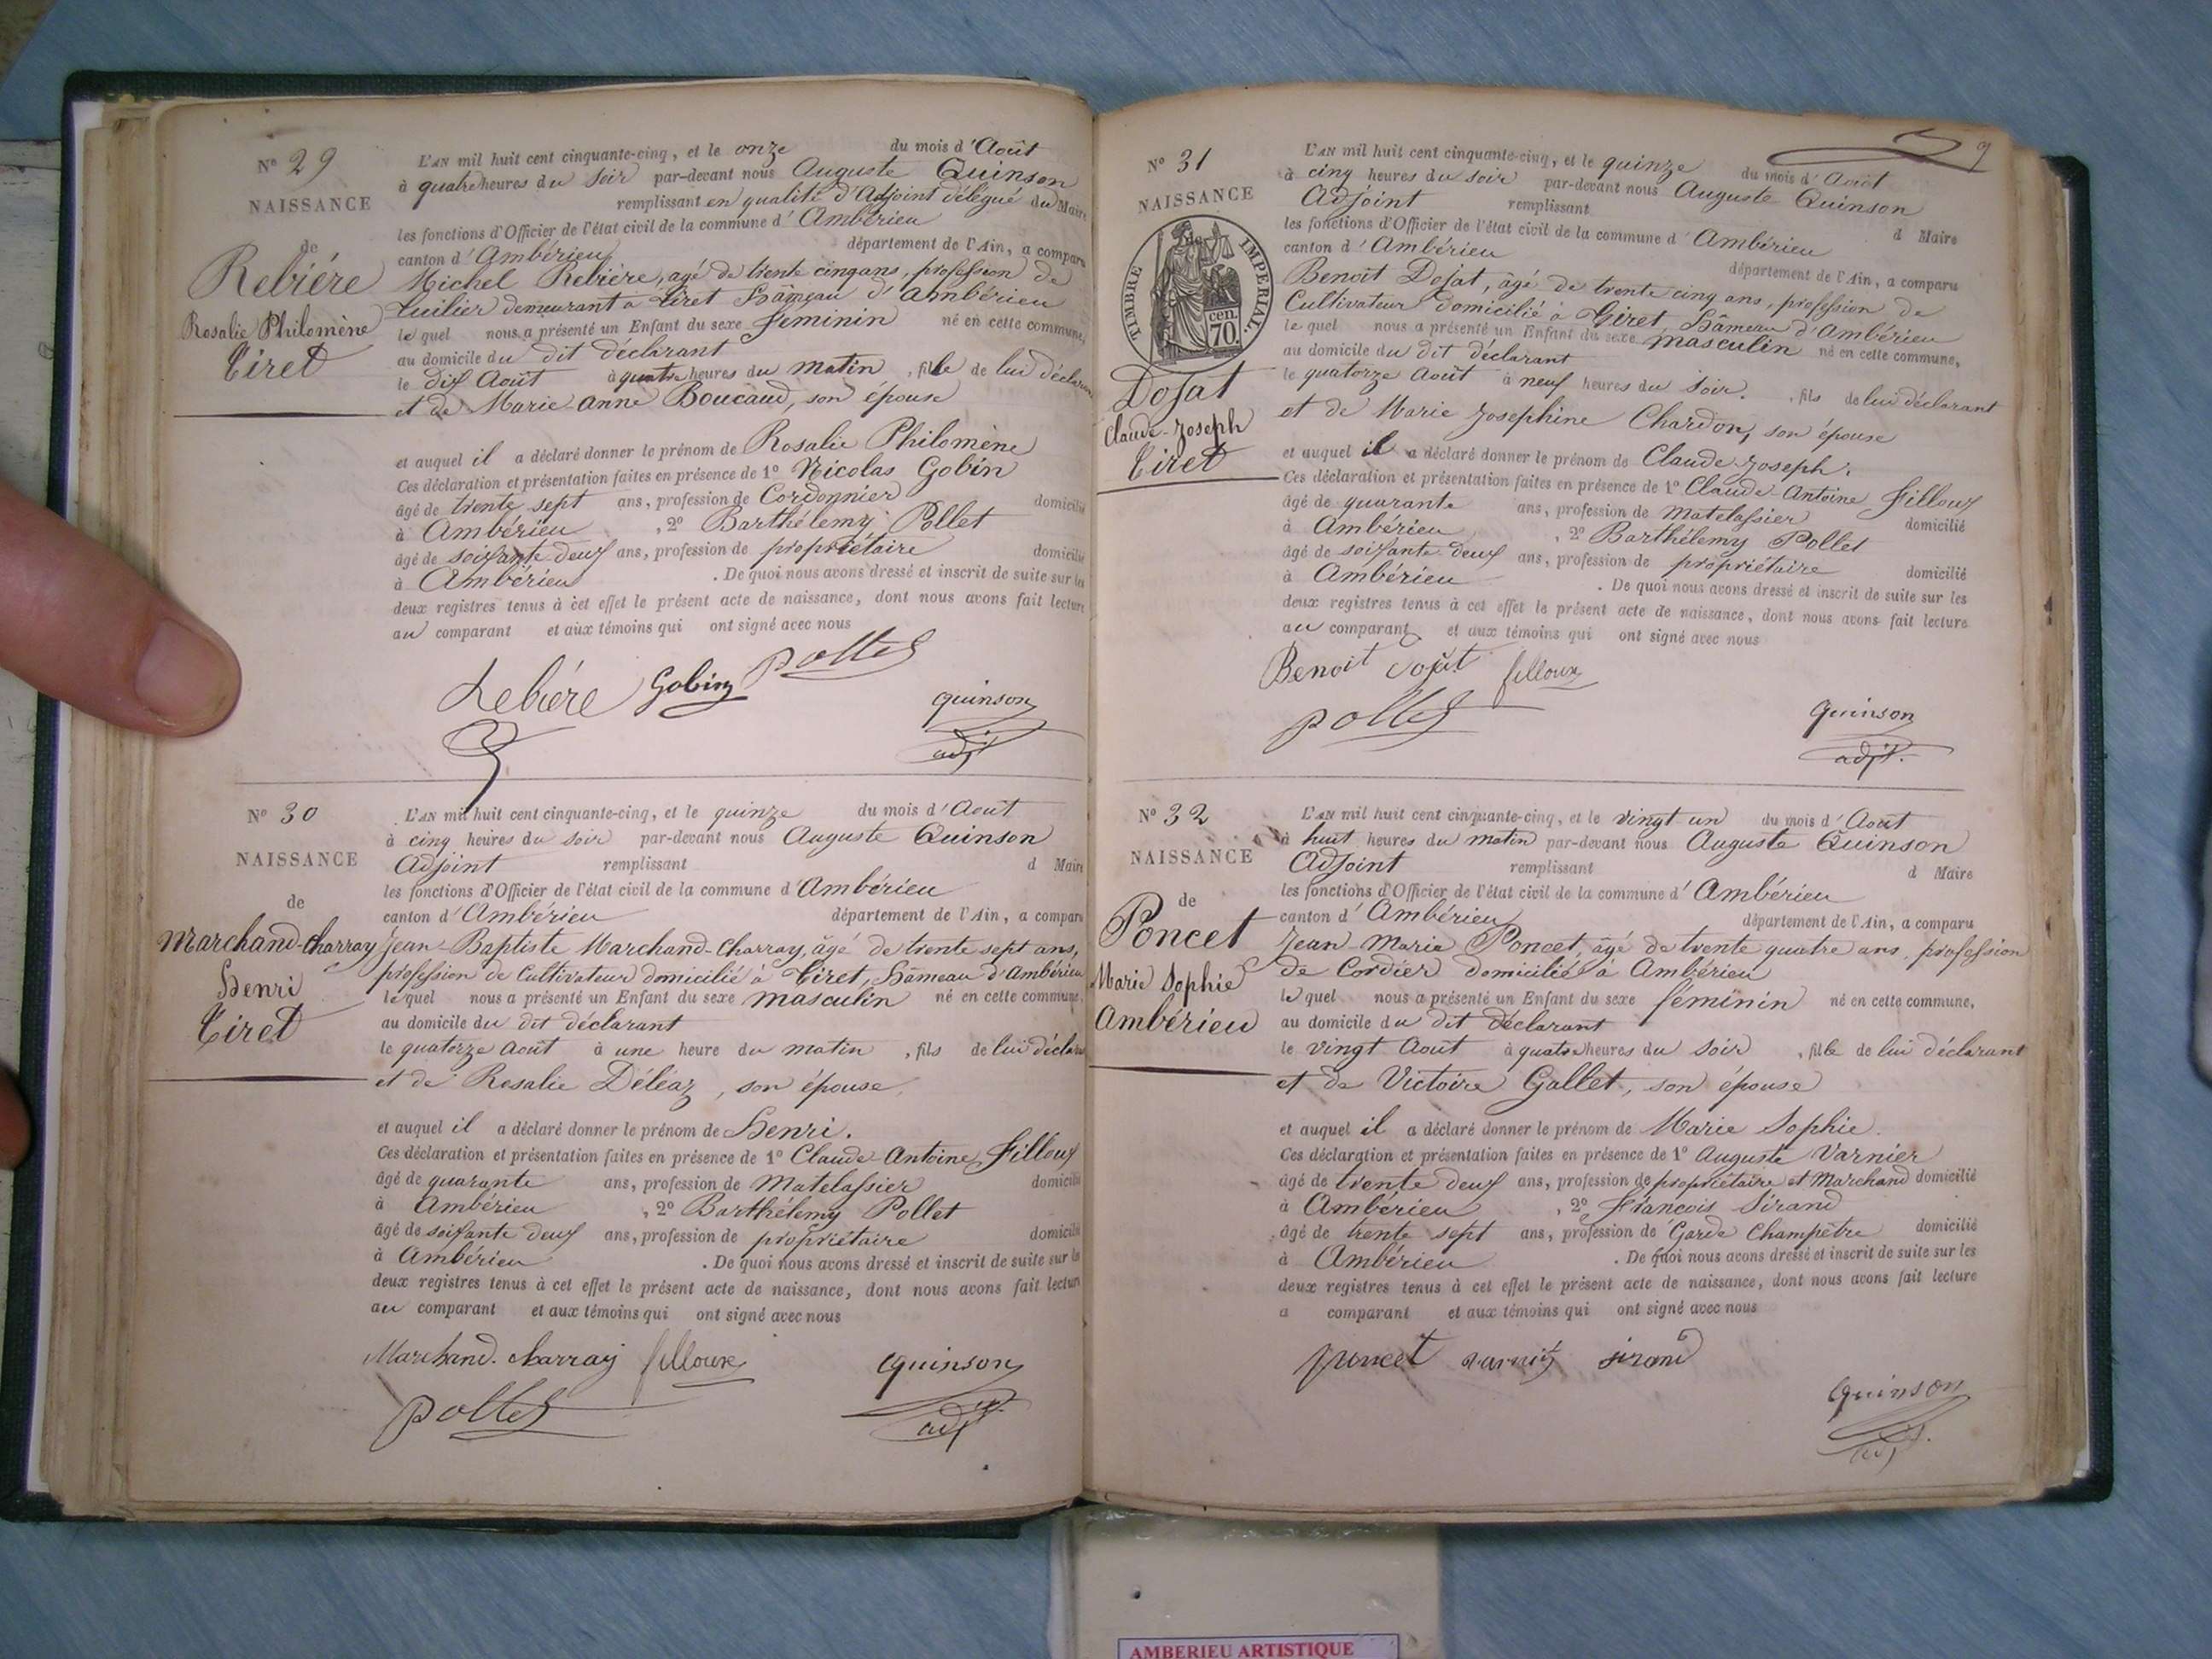 N° 29
NAISSANCE
de
Rebiére
Rosalie Philomène
Tiret
L'AN mil huit cent cinquante-cinq, et le onze du mois d'Août
à quatre heures du soir par-devant nous Auguste Quinson
remplissant en qualité d'Adjoint délégué du Maire
les fonctions d'Officier de l'état civil de la commune d'Ambérieu
canton d'Ambérieu département de l'Ain, a comparu
Michel Rebière, agé de trente cinq ans, profession de
tuilier demeurant a Tiret hâmeau d'Ambérieu
le quel nous a présenté un Enfant du sexe feminin né en cette commune,
au domicile du dit déclarant
le dix Août à quatre heures du matin, fille de lui déclarant
et de Marie-Anne Boucaud, son épouse
et auquel il a déclaré donner le prénom de Rosalie Philomène
Ces déclaration et présentation faites en présence de 1° Nicolas Gobin
âgé de trente sept ans, profession de Cordonnier domicilié
à Ambérieu, 2° Barthélemy Pollet
âgé de soixante deux ans, profession de propriétaire domicilié
à Ambérieu. De quoi nous avons dressé et inscrit de suite sur les
deux registres tenus à cet effet le présent acte de naissance, dont nous avons fait lecture
au comparant et aux témoins qui ont signé avec nous
Rebiére Gobin Pollet
quinson
adjt
N° 30
NAISSANCE
de
Marchand-Charray
Henri
Tiret
L'AN mil huit cent cinquante-cinq, et le quinze du mois d'Aout
à cinq heures du soir par-devant nous Auguste Quinson
Adjoint remplissant d Maire
les fonctions d'Officier de l'état civil de la commune d'Ambérieu
canton d'Ambérieu département de l'Ain, a comparu
Jean-Baptiste Marchand-Charray, âgé de trente sept ans,
profession de Cultivateur domicilié à Tiret, hâmeau d'Ambérieu
le quel nous a présenté un Enfant du sexe masculin né en cette commune,
au domicile du dit déclarant
le quatorze Août à une heure du matin, fils de lui déclarant
et de Rosalie Déléaz, son épouse,
et auquel il a déclaré donner le prénom de Henri.
Ces déclaration et présentation faites en présence de 1° Claude-Antoine Filloux
âgé de quarante ans, profession de Matelassier domicilié
à Ambérieu, 2° Barthélemy Pollet
âgé de soixante deux ans, profession de propriétaire domicilié
à Ambérieu. De quoi nous avons dressé et inscrit de suite sur les
deux registres tenus à cet effet le présent acte de naissance, dont nous avons fait lecture
au comparant et aux témoins qui ont signé avec nous
Marchand. Charray filloux
quinson
Pollet
adjt
9
N° 31
NAISSANCE
de
TIMBRE IMPERIAL.
cen.
70.
Dojat
Claude-Joseph
Tiret
L'AN mil huit cent cinquante-cinq, et le quinze du mois d'Août
à cinq heures du soir par-devant nous Auguste Quinson
Adjoint remplissant d Maire
les fonctions d'Officier de l'état civil de la commune d'Ambérieu
canton d'Ambérieu département de l'Ain, a comparu
Benoît Dojat, âgé de trente cinq ans, profession de
Cultivateur domicilié à Tiret, hâmeau d'Ambérieu
le quel nous a présenté un Enfant du sexe masculin né en cette commune,
au domicile du dit déclarant
le quatorze Août à neuf heures du soir., fils de lui déclarant
et de Marie Josephine Chardon, son épouse
et auquel il a déclaré donner le prénom de Claude-Joseph.
Ces déclaration et présentation faites en présence de 1° Claude-Antoine Filloux
âgé de quarante ans, profession de Matelassier domicilié
à Ambérieu, 2° Barthélemy Pollet
âgé de soixante deux ans, profession de propriétaire domicilié
à Ambérieu. De quoi nous avons dressé et inscrit de suite sur les
deux registres tenus à cet effet le présent acte de naissance, dont nous avons fait lecture
au comparant et aux témoins qui ont signé avec nous
Benoit Dojat filloux
Pollet
quinson
adjt.
N° 32
NAISSANCE
de
Poncet
Marie Sophie
Ambérieu
L'AN mil huit cent cinquante-cinq, et le vingt-un du mois d'Aout
à huit heures du matin par-devant nous Auguste Quinson
Adjoint remplissant d Maire
les fonctions d'Officier de l'état civil de la commune d'Ambérieu
canton d'Ambérieu département de l'Ain, a comparu
Jean-Marie Poncet, âgé de trente quatre ans, profession
de Cordier domicilié à Ambérieu
le quel nous a présenté un Enfant du sexe féminin né en cette commune,
au domicile du dit déclarant
le vingt Août à quatre heures du soir, fille de lui déclarant
et de Victoire Gallet, son épouse
et auquel il a déclaré donner le prénom de Marie Sophie.
Ces déclaration et présentation faites en présence de 1° Auguste Varnier
âgé de trente deux ans, profession de propriétaire et Marchand domicilié
à Ambérieu, 2° François Sirand
âgé de trente sept ans, profession de Garde Champêtre domicilié
à Ambérieu. De quoi nous avons dressé et inscrit de suite sur les
deux registres tenus à cet effet le présent acte de naissance, dont nous avons fait lecture
a comparant et aux témoins qui ont signé avec nous
poncet varnier sirand
quinson
adjt.
AMBERIEU ARTISTIQUE